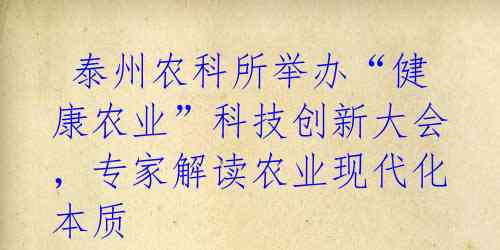 泰州农科所举办“健
康农业”科技创新大会
，专家解读农业现代化
本质